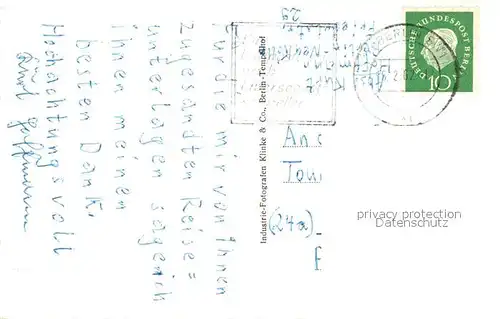 Für die mir von Ihnen
zugesandten Reise=
unterlagen sage ich
Ihnen meinen
besten Dank.
Hochachtungsvoll
Kurt Hoffmann
Industrie-Fotografen Klinke & Co., Berlin-Tempelhof
Kurt
Hoffmann
Berlin-Neukölln
29
DEUTSCHE BUNDESPOST BERLIN
10
An
Tou
(24a)
privacy protection
Datenschutz